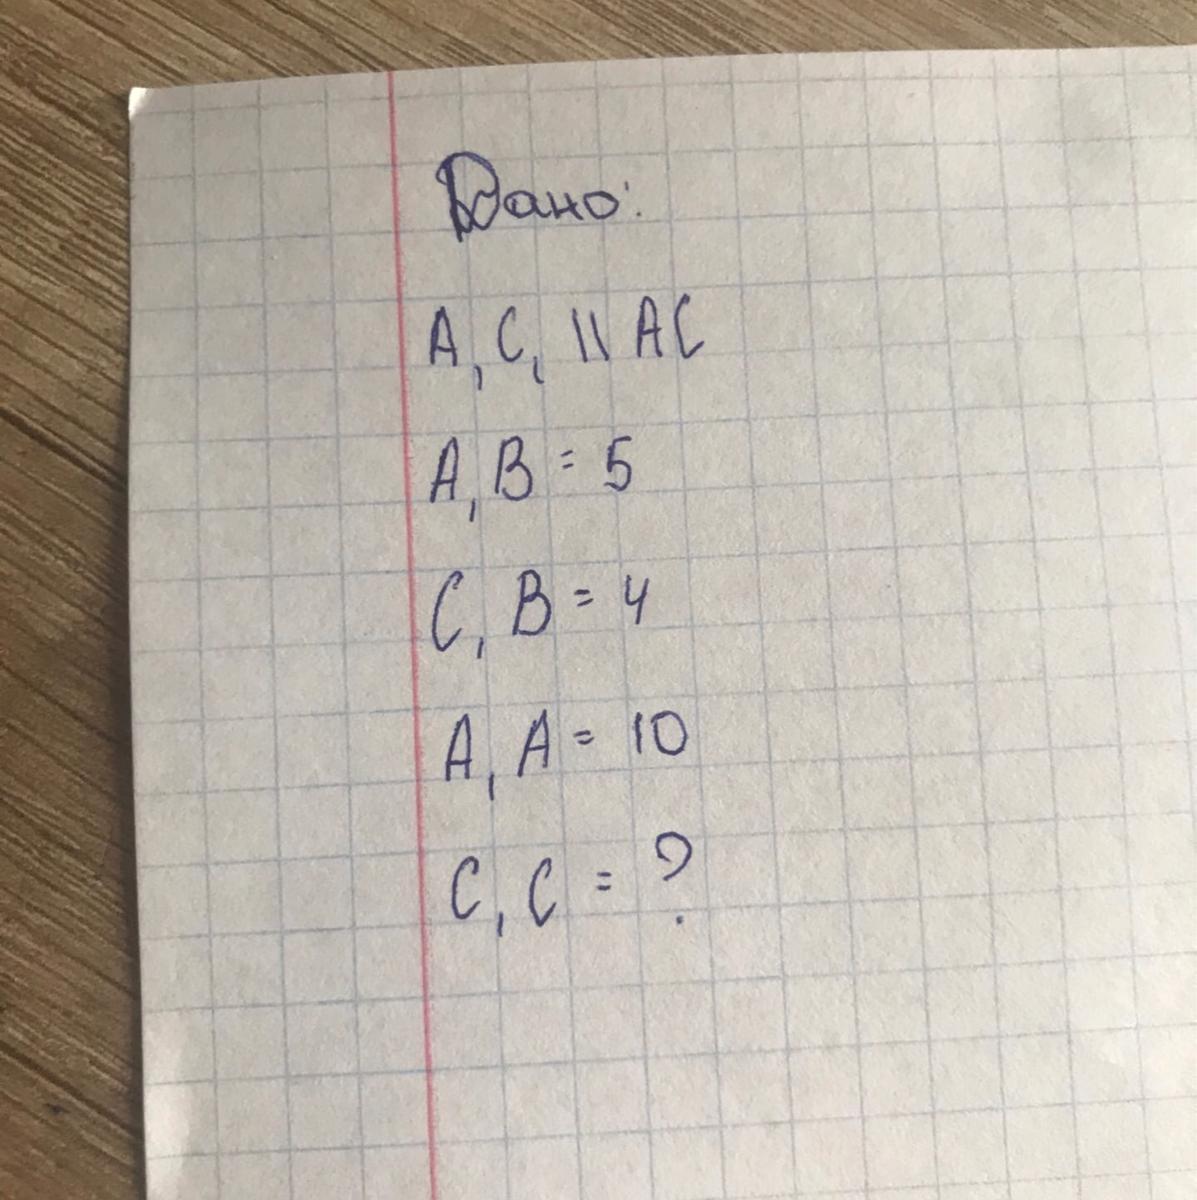 Дано:
A₁C₁ || AC
A₁B = 5
C₁B = 4
A₁A = 10
C₁C = ?